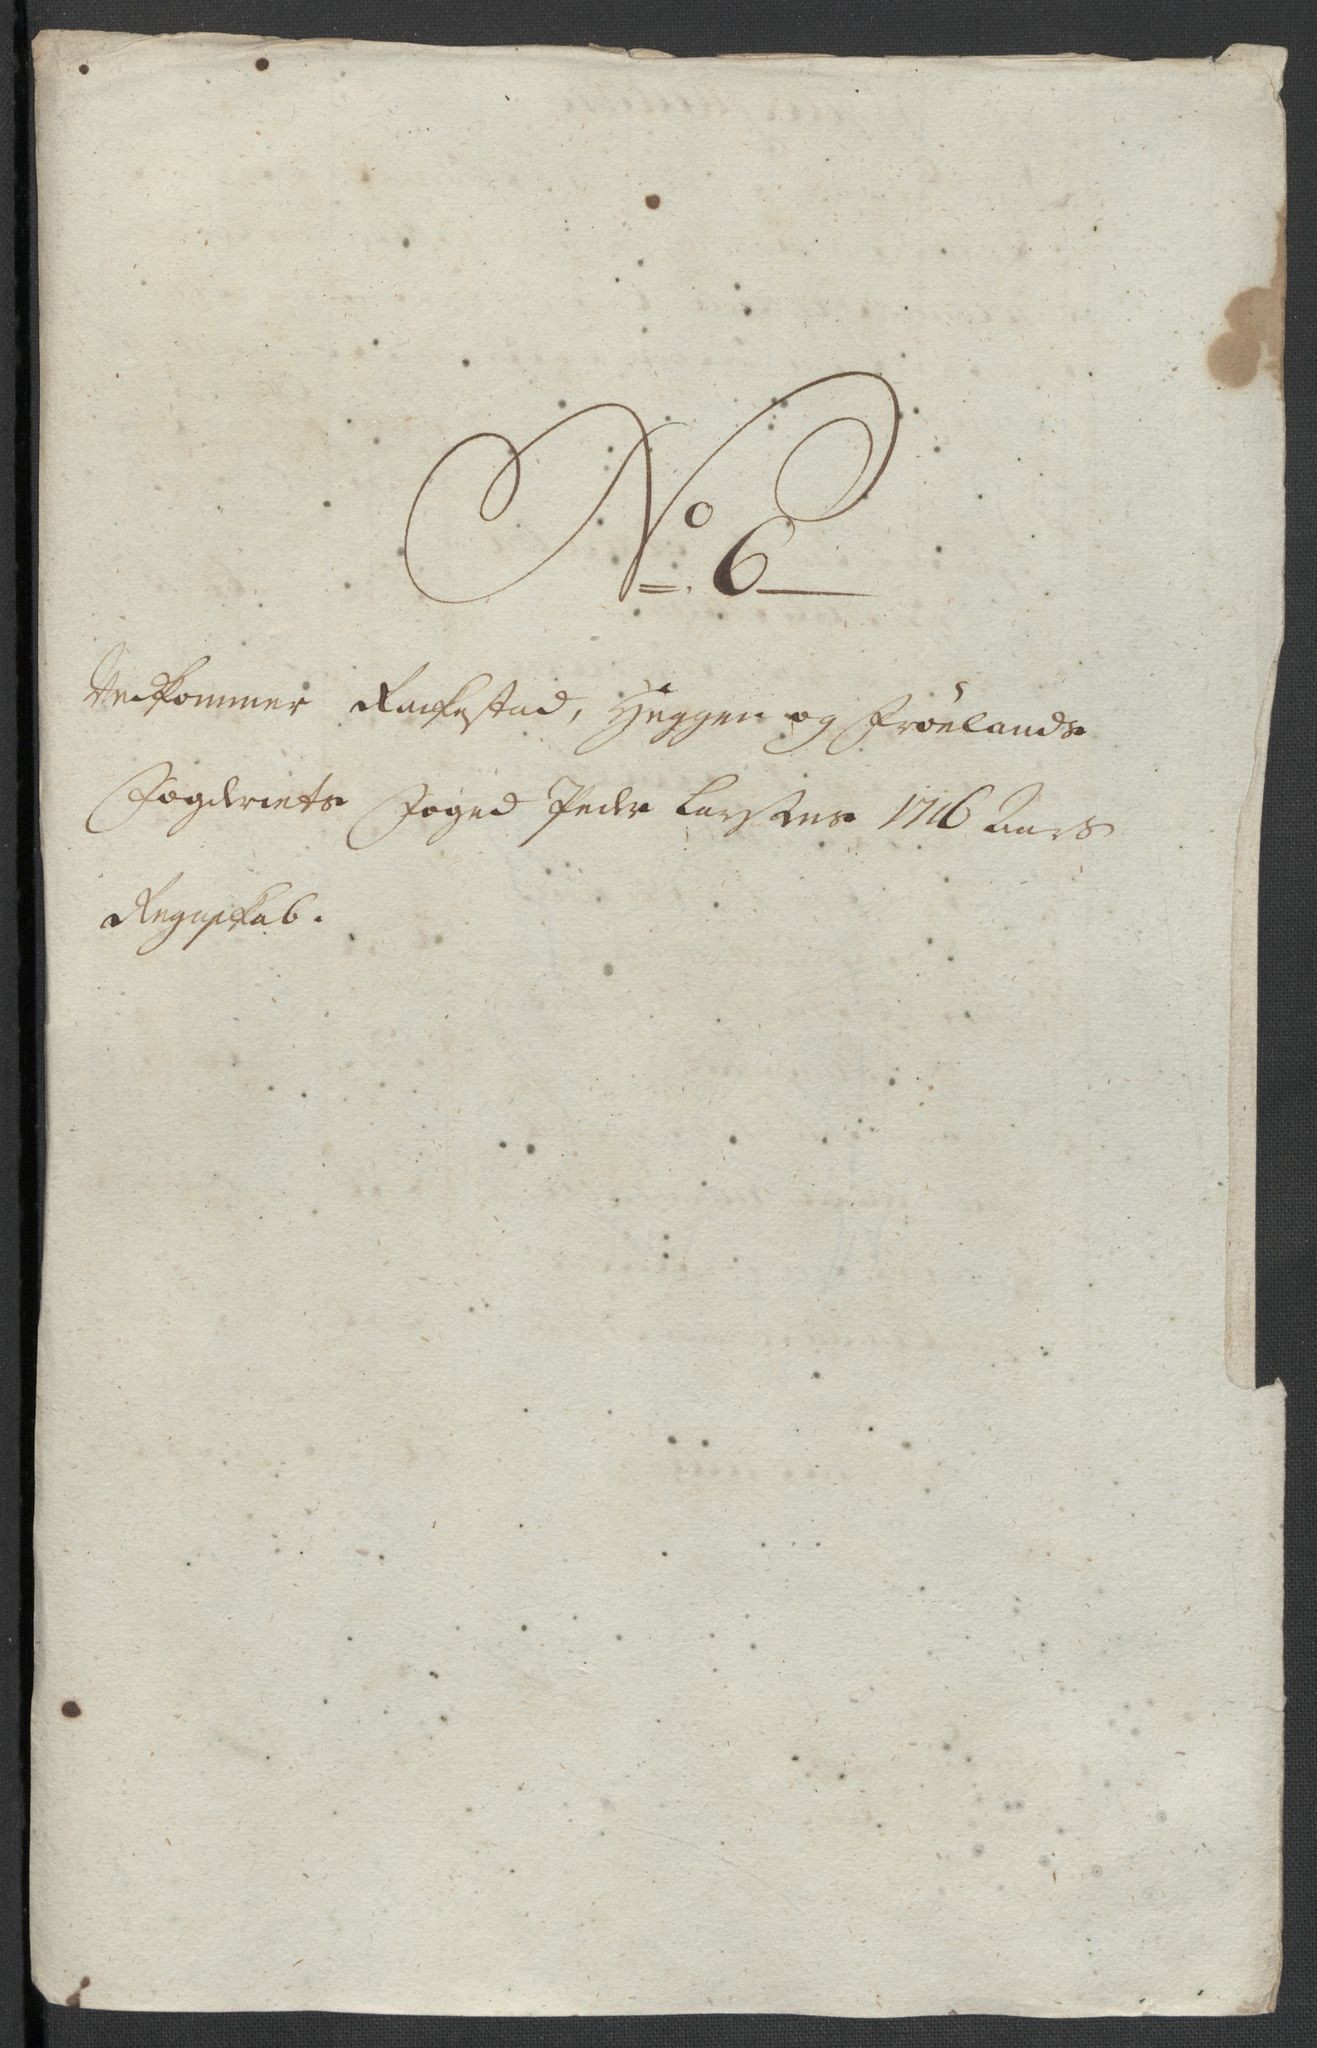 No. 6
Vedkommer Rackestad, Heggen og Frölands
Fogderiets Foged Peder Larsens 1716 Aars
Regnskab.